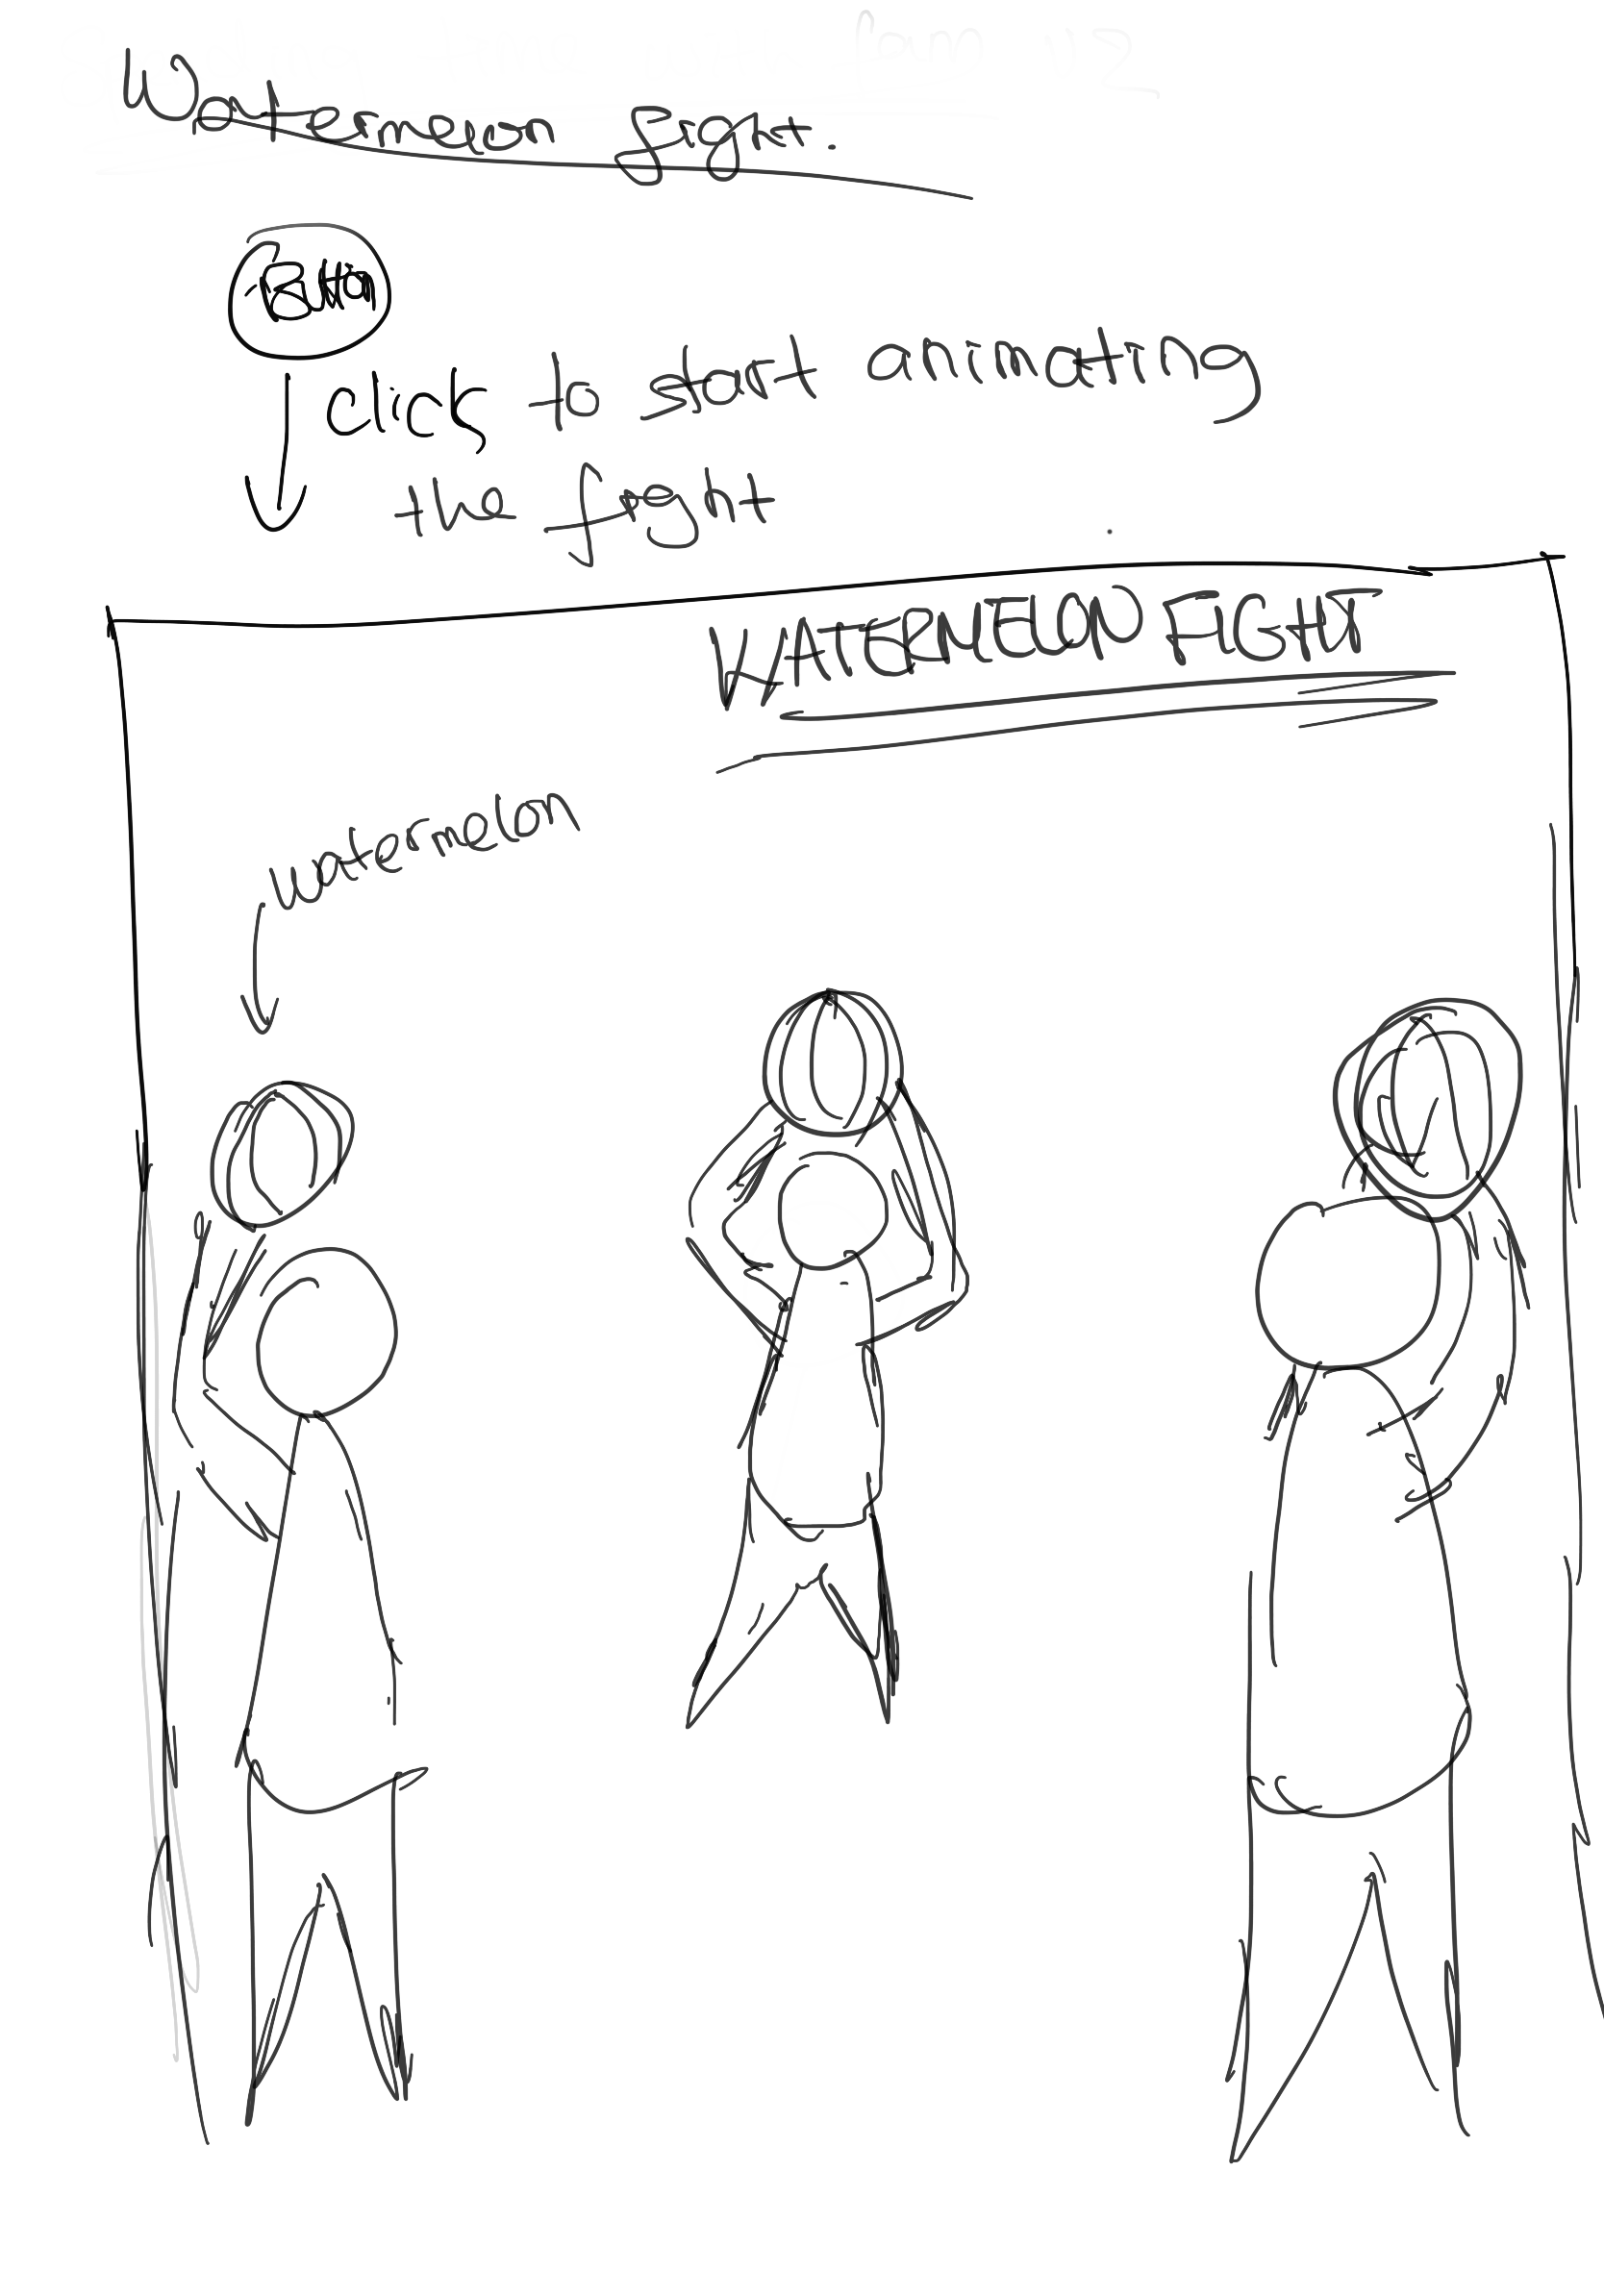 Watermelon fight.
Button
click to start animating
the fight
WATERMELON FIGHT
watermelon